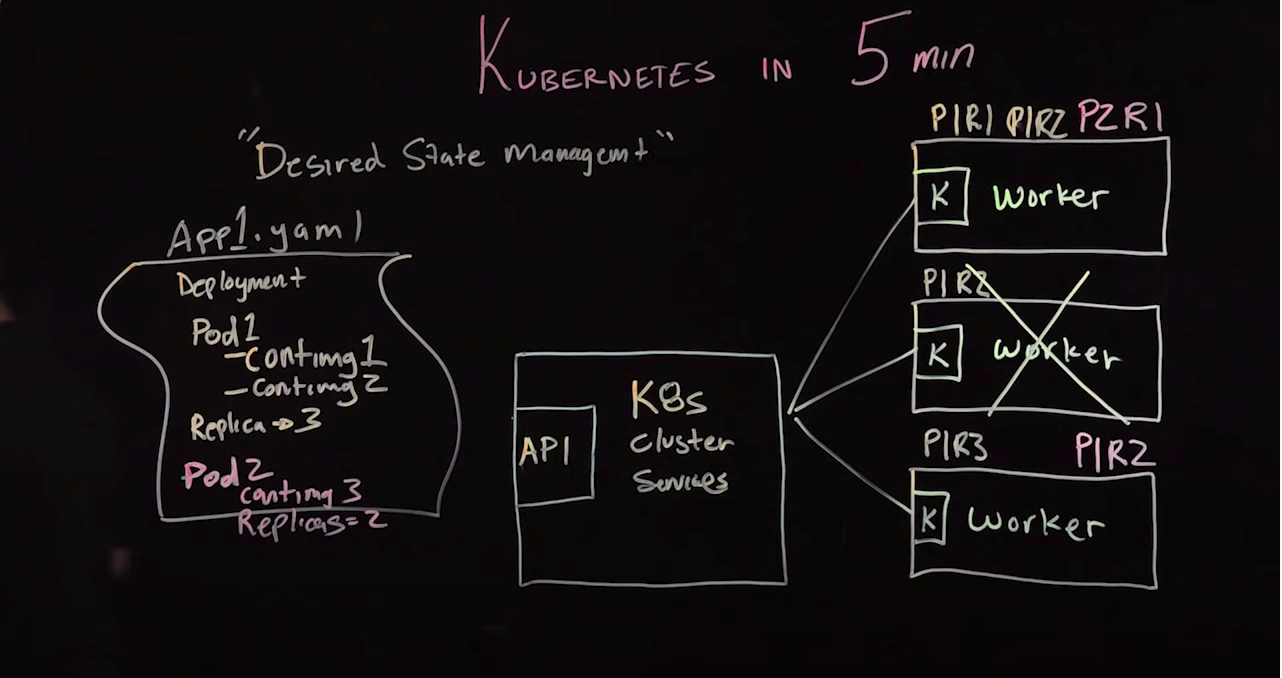 KUBERNETES IN 5 min
"Desired State Managemt"
App1.yaml
Deployment
Pod1
- Contimg1
- Contimg2
Replica → 3
Pod2
contimg 3
Replicas = 2
API
K8s
Cluster
Services
P1R1 P1R2 P2R1
K Worker
P1R2
K Worker
P1R3 P1R2
K Worker